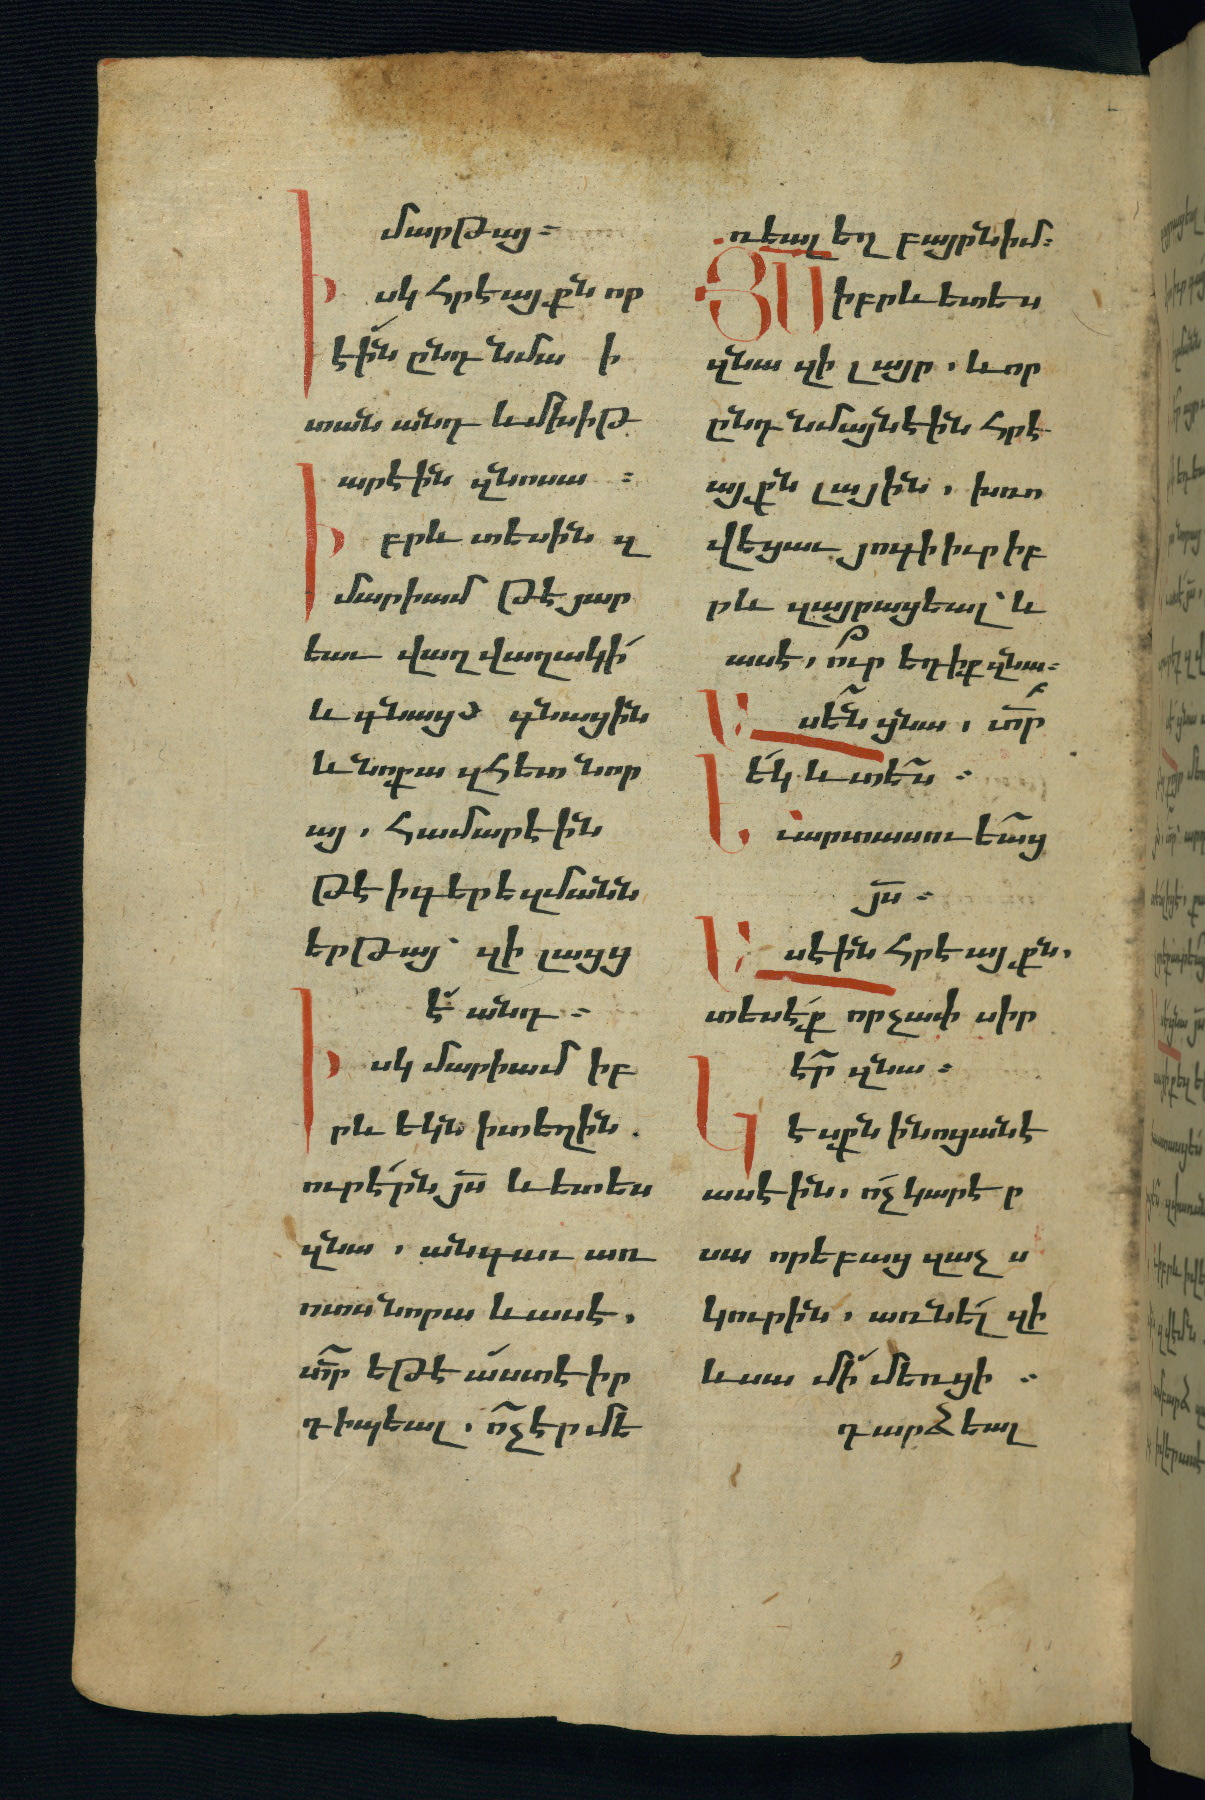 մարթայ։
Իսկ հրէայքն որ
էին ընդ նմա ի
տան անդ և մխիթ
արէին զնոսա ։
Իբրև տեսին զ
մարիամ թէ յար
եաւ վաղվաղակի
և գնաց՝ գնացին
և նոքա զհետ նոր
ա, համարէին
թէ ի գերեզմանն
երթայ՝ զի լացց
է անդ ։
Իսկ մարիամ իբ
րև եկն ի տեղին
ուր էրն յս և ետես
զնա , անգաւ առ
ոտս նորա և ասէ,
տր եթէ աստ էիր
դիպեալ, ոչ էր մե
ռեալ եղբայրն իմ։
Յս իբրև ետես
զնա զի լայր , և որ
ընդ նմայն էին հրէ
այքն լային , խռո
վեցաւ յոգի իւր իբ
րև զայրացեալ՝ և
ասէ, ուր եդիք զնա։
Ասեն ցնա , տր
եկ և տես ։
Եւ արտասուեաց
յս ։
Ասէին հրեայքն,
տեսէք որչափ սիր
էր զնա ։
Կէսքն ի նոցանէ
ասէին, ոչ կարէր
սա որ եբաց զաչս
կուրին , առնել զի
և սա մի մեռցի ։
դարձեալ